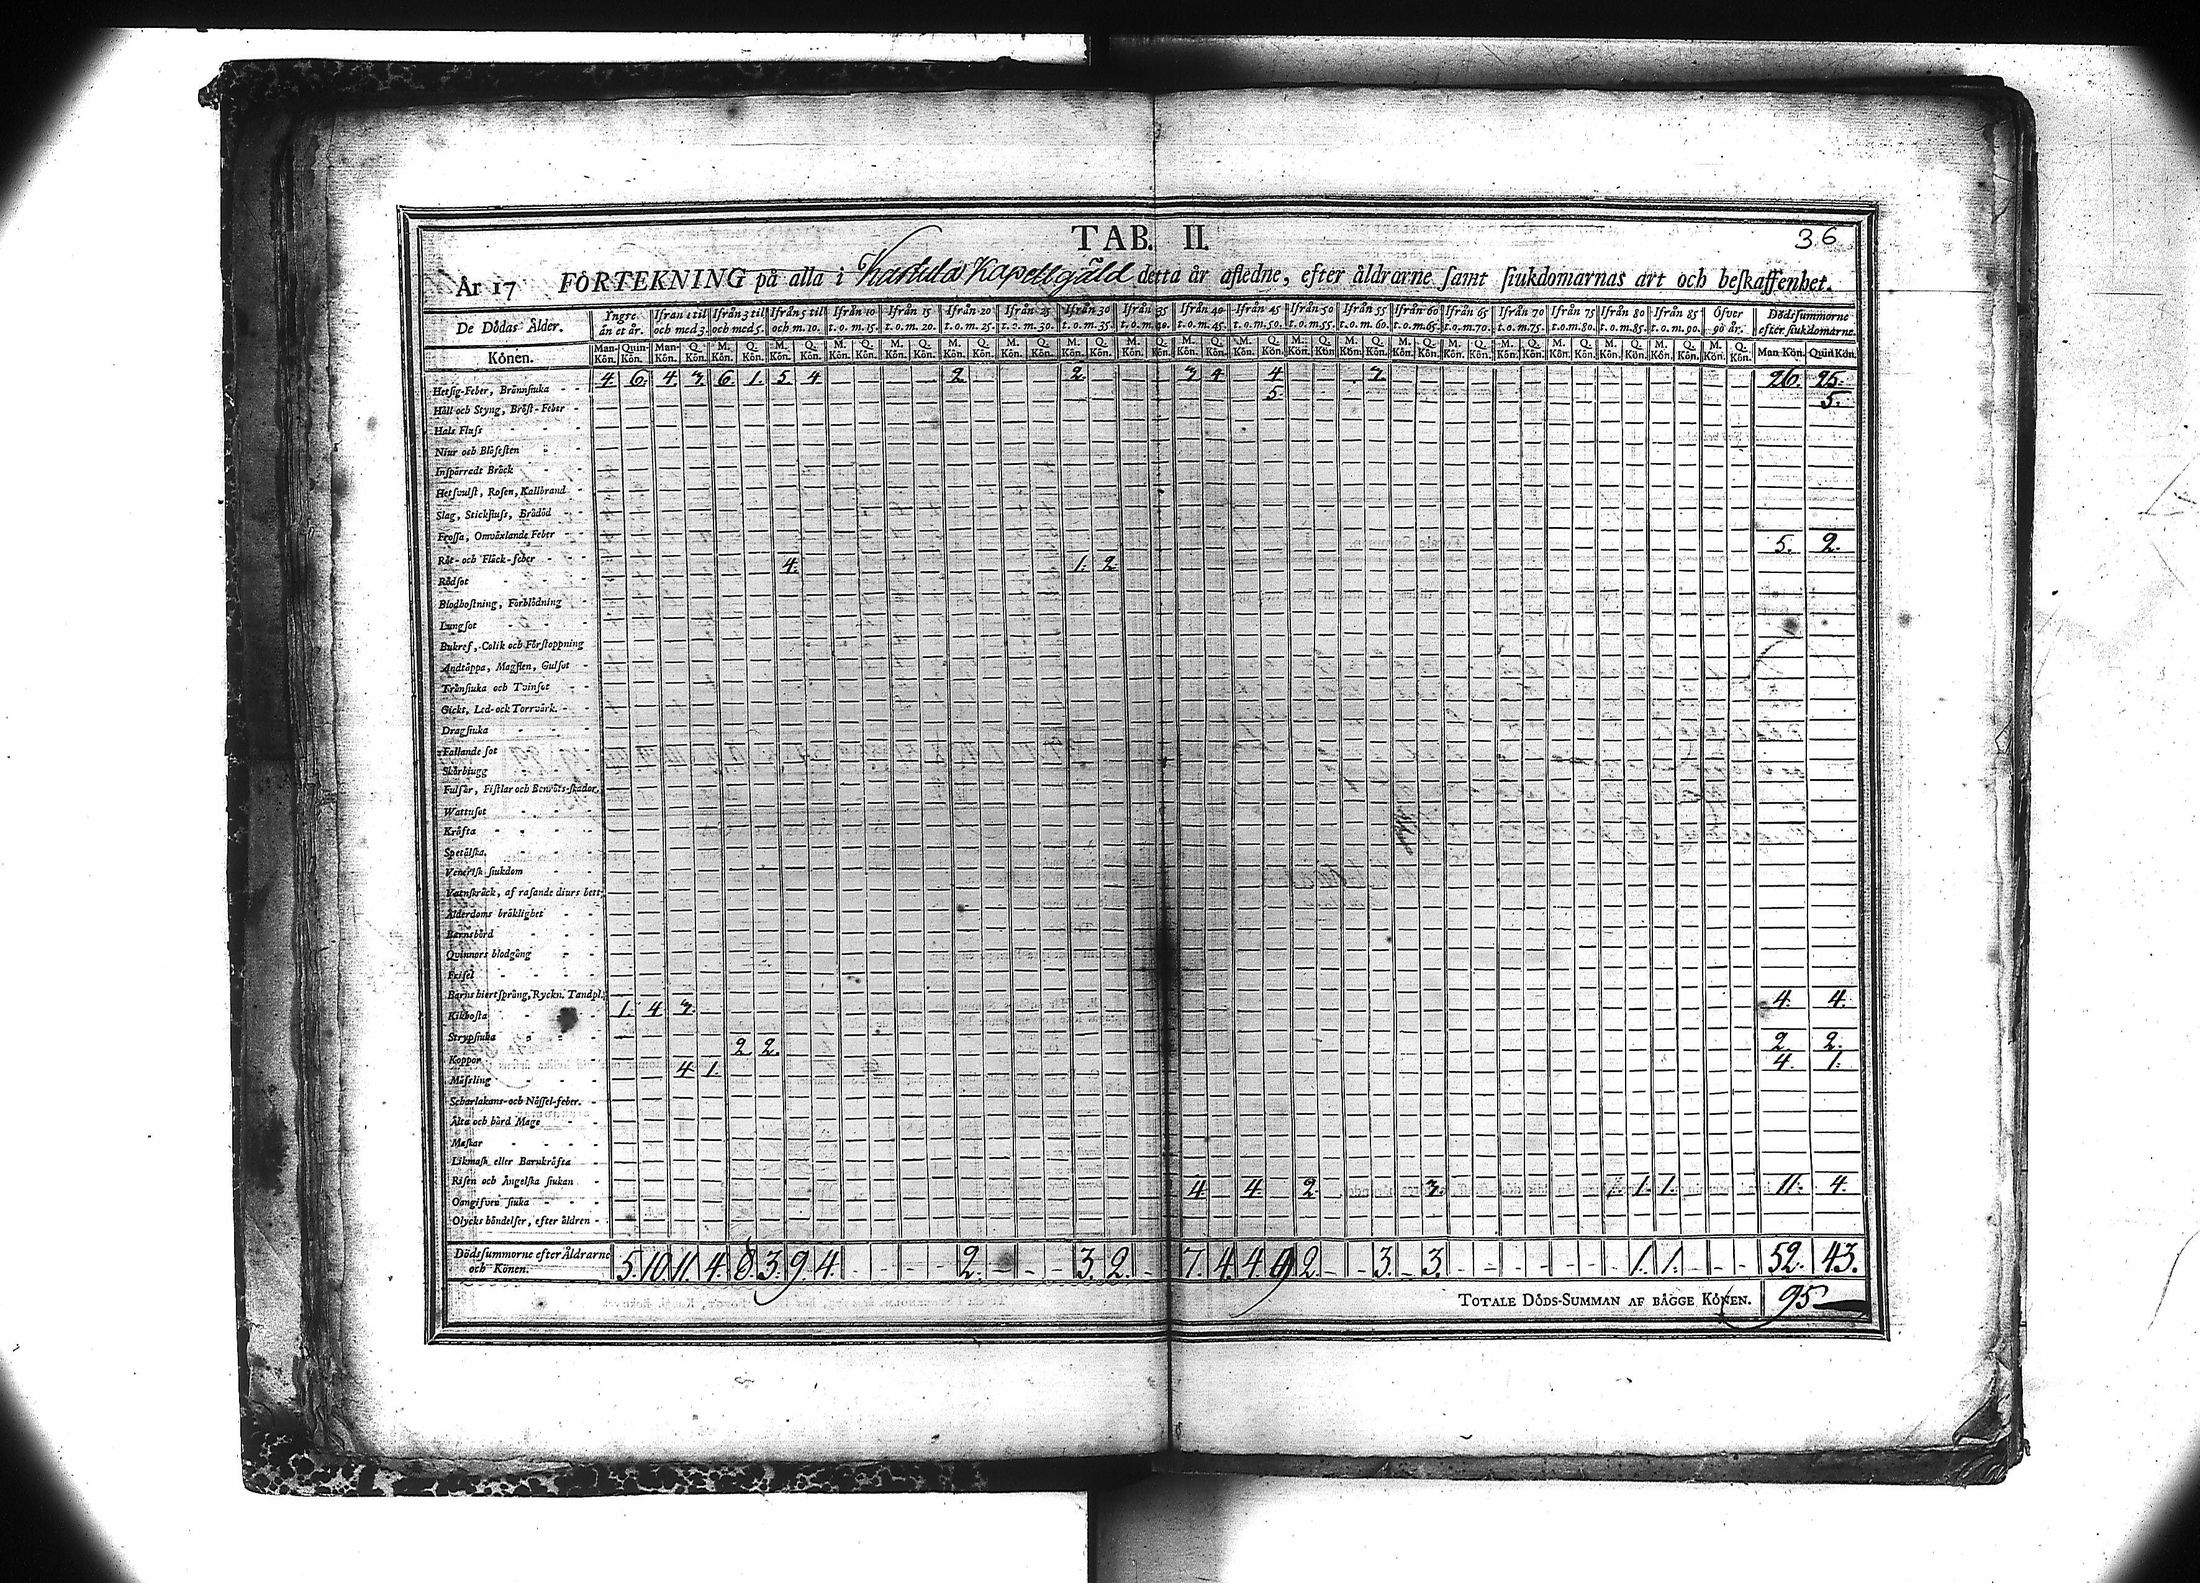 TAB. II.
36
År 17 FÖRTEKNING på alla i Karttula Kapellgäld detta år afledne, efter åldrarne samt siukdomarnas art och beskaffenhet.
De Dödas Ålder. Yngre än et år. Ifrån 1 til och med 3. Ifrån 3 til och med 5. Ifrån 5 til och m. 10. Ifrån 10 t.o.m. 15. Ifrån 15 t.o.m. 20. Ifrån 20 t.o.m. 25. Ifrån 25 t.o.m. 30. Ifrån 30 t.o.m. 35. Ifrån 35 t.o.m. 40. Ifrån 40 t.o.m. 45. Ifrån 45 t.o.m. 50. Ifrån 50 t.o.m. 55. Ifrån 55 t.o.m. 60. Ifrån 60 t.o.m. 65. Ifrån 65 t.o.m. 70. Ifrån 70 t.o.m. 75. Ifrån 75 t.o.m. 80. Ifrån 80 t.o.m. 85. Ifrån 85 t.o.m. 90. Öfver 90 år. Dödssummorne efter siukdomarne.
Könen. Man-Kön. Quin-Kön. Man-Kön. Q. Kön. M. Kön. Q. Kön. M. Kön. Q. Kön. M. Kön. Q. Kön. M. Kön. Q. Kön. M. Kön. Q. Kön. M. Kön. Q. Kön. M. Kön. Q. Kön. M. Kön. Q. Kön. M. Kön. Q. Kön. M. Kön. Q. Kön. M. Kön. Q. Kön. M. Kön. Q. Kön. M. Kön. Q. Kön. M. Kön. Q. Kön. M. Kön. Q. Kön. M. Kön. Q. Kön. M. Kön. Q. Kön. M. Kön. Q. Kön. M. Kön. Q. Kön. Man Kön. Quin Kön.
Hetsig-Feber, Brännsiuka 4. 6. 4. 3. 6. 1. 5. 4. 2. 2. 3 4. 4 26. 25.
Håll och Styng, Bröst-Feber 5. 5.
Hals Fluss
Niur och Blåsesten
Inspärradt Bråck
Hetsvulst, Rosen, Kallbrand
Slag, Stickfluss, Brådöd
Frossa, Omväxlande Feber
Röt- och Fläck-feber 4. 1. 2 5. 2.
Rödsot
Blodhostning, Förblödning
Lungsot
Bukref, Colik och Förstoppning
Andtäppa, Magsten, Gulsot
Trånsiuka och Tvinsot
Gickt, Led- ock Torrvärk.
Dragsiuka
Fallande sot
Skörbiugg
Fulsår, Fistlar och Benröts-skador
Wattusot
Kräfta
Spetälska
Venerisk siukdom
Vatnskräck, af rasande diurs bett
Ålderdoms bräklighet
Barnsbörd
Qvinnors blodgång
Frisel
Barns hiertsprång, Ryckn. Tandpl.
Kikhosta 1. 4 3. 4. 4.
Strypsiuka
Koppor 2 2. 2 2.
Mässling 4 1. 4. 1.
Scharlakans- och Nässel-feber.
Älta och hård Mage
Maskar
Likmask eller Barnkräfta
Risen och Ängelska siukan
Oangifven siuka 4. 4. 2. 3. 1. 1. 11. 4.
Olycks händelser, efter åldren
Dödssummorne efter Åldrarne och Könen. 5. 10 11. 4. 8. 3. 9. 4. 2. 3. 2. 7. 4. 4. 9 2. 3. 3. 1. 1. 52. 43.
TOTALE DÖDS-SUMMAN AF BÄGGE KÖNEN. 95